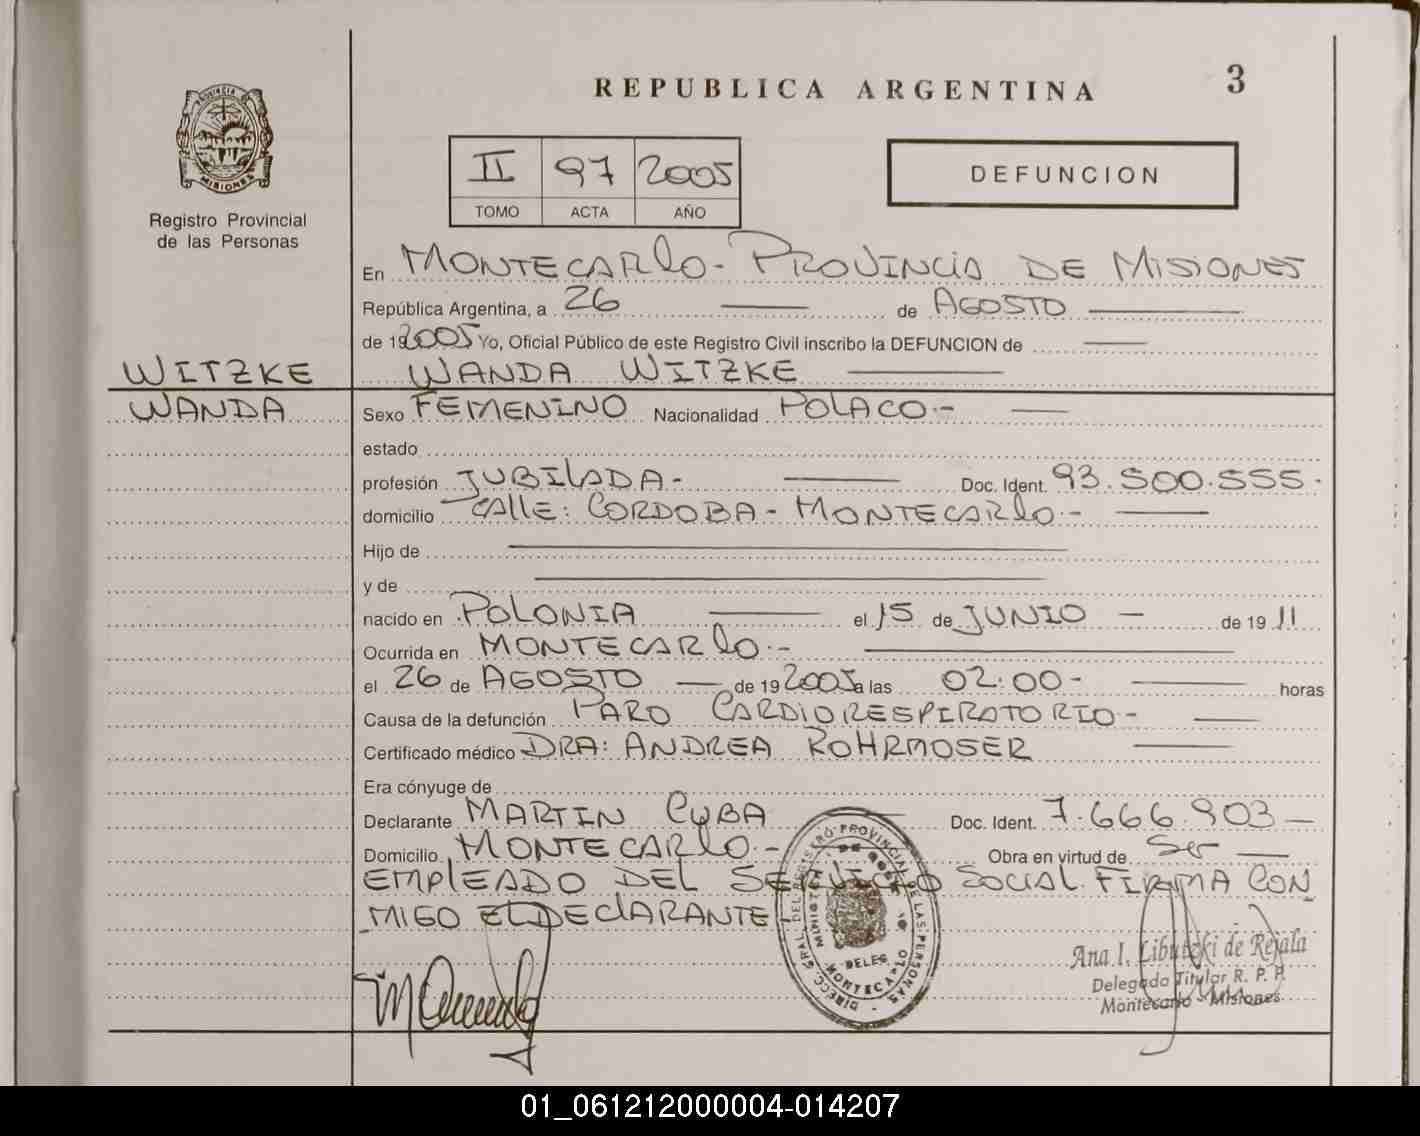 REPUBLICA ARGENTINA
3
PROVINCIA
MISIONES
Registro Provincial
de las Personas
II 97 2005
TOMO ACTA AÑO
DEFUNCION
En MONTECARLO- PROVINCIA DE MISIONES
República Argentina, a 26 de AGOSTO
de 192005 Yo, Oficial Público de este Registro Civil inscribo la DEFUNCION de
WITZKE
WANDA WITZKE
WANDA
Sexo FEMENINO Nacionalidad POLACO.-
estado
profesión JUBILADA- Doc. Ident. 93.500.555.
domicilio CALLE: CORDOBA- MONTECARLO.-
Hijo de
y de
nacido en POLONIA el 15 de JUNIO de 19 11
Ocurrida en MONTECARLO.-
el 26 de AGOSTO de 192005 a las 02:00- horas
Causa de la defunción PARO CARDIORESPIRATORIO-
Certificado médico DRA: ANDREA ROHRMOSER
Era cónyuge de
Declarante MARTIN CUBA Doc. Ident. 7.666.903
Domicilio MONTECARLO.- Obra en virtud de Ser
EMPLEADO DEL SERVICIO SOCIAL. FIRMA CON
MIGO EL DECLARANTE
DIRECC. GRAL. DEL REGISTRO PROVINCIAL DE LAS PERSONAS
DELEG
Ana I. de Rejala
Delegada Titular R. P. P.
Montecarlo - Misiones
01_061212000004-014207